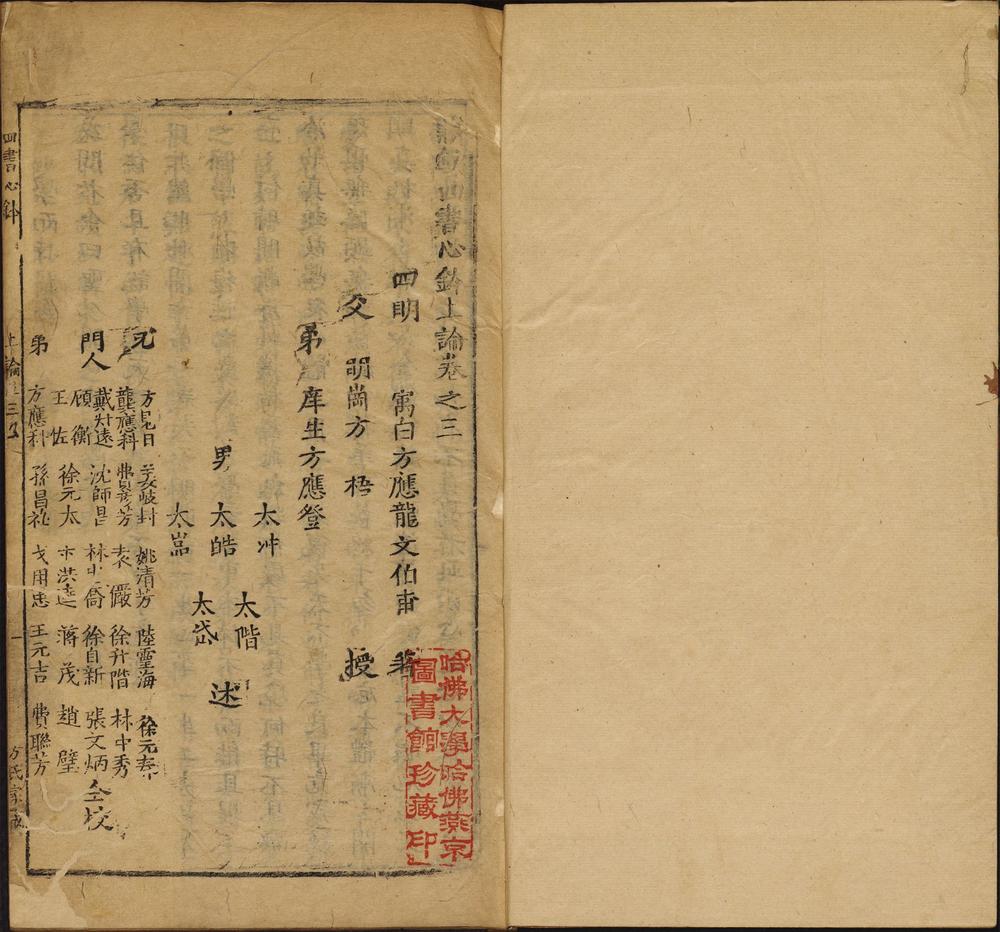 四書心鈔上論卷之三
四明 寓白方應龍文伯甫 著
父 明崗方梧 授
弟 庠生方應登
太冲
太階
男 太皓 述
太岱
太嵓
兄 方見日 姚清芳 陸霊海 徐元春
龔應科 費雲芳 袁儼 徐升階 林中秀
門人 戴升遠 沈師昌 徐自新 張文炳 仝校
顧衡
王佐 徐元太 蔣茂 趙璧
弟 方應科 孫昌祉 戈用忠 王元吉 費聯芳
四書心鈔
上論 三
一
哈佛大學哈佛燕京
圖書館珍藏印